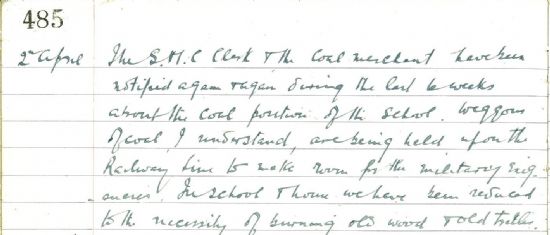 485
2nd April The S.M.C Clerk & the Coal merchant have been
notified again & again during the last 6 weeks
about the coal position of the School. Waggons
of coal, I understand, are being held up on the
Railway line to make room for the military exig-
-encies. In school & house we have been reduced
to the necessity of burning old wood & old